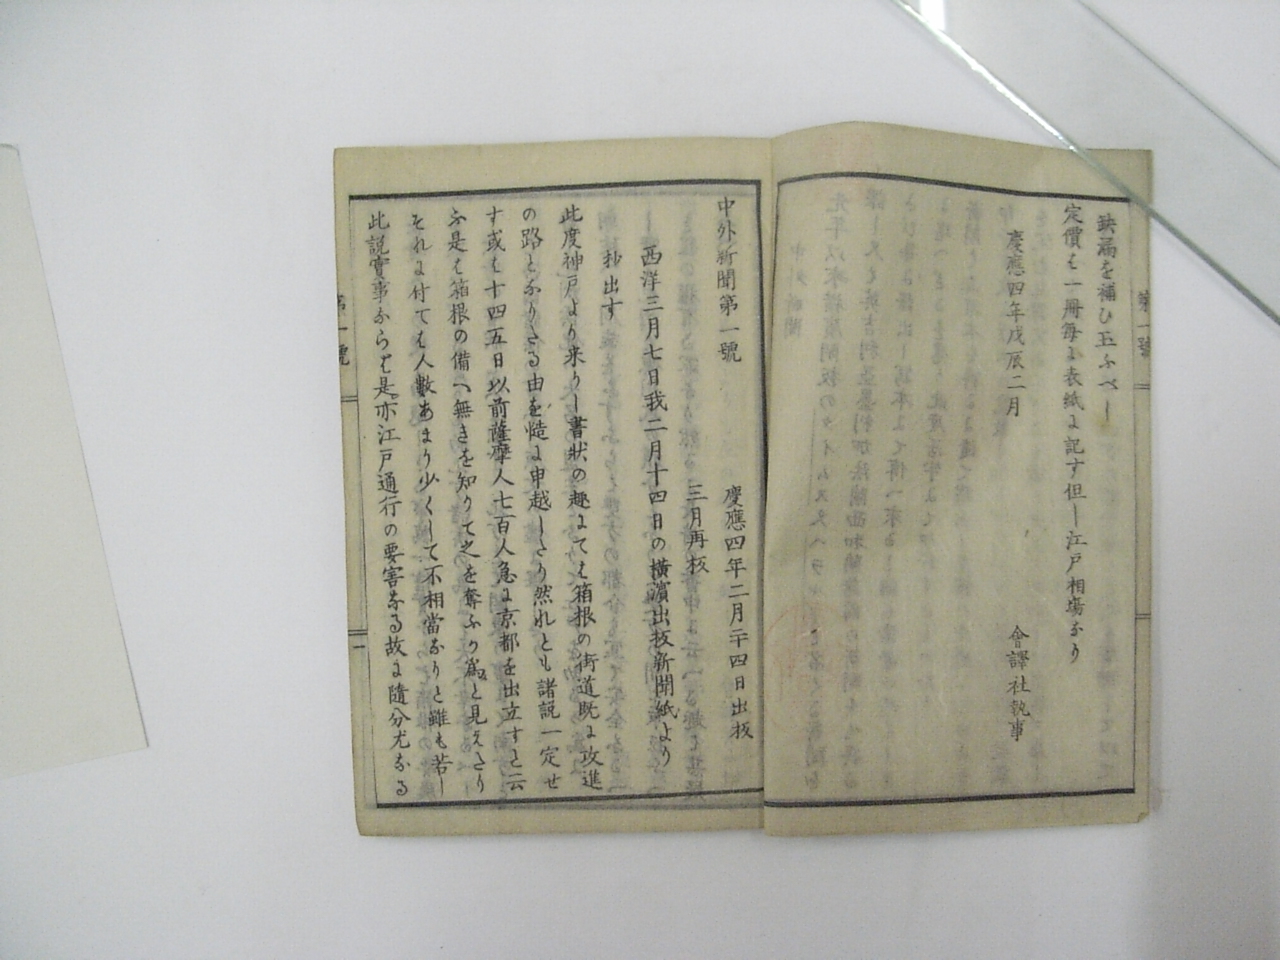 缺漏を補ひ玉ふべし
定價は一冊毎に表紙に記す但し江戸相場なり
慶應四年戊辰二月
會譯社執事
中外新聞第一號
慶應四年二月廿四日出板
三月再板
西洋三月七日我二月十四日の横濱出板新聞紙より
抄出す
此度神戸より来りし書状の趣にては箱根の街道既に攻進
の路となりたる由を慥に申越したり然れとも諸説一定せ
す或は十四五日以前薩摩人七百人急に京都を出立すと云
ふ是は箱根の備へ無きを知りて之を奪ふ為と見えたり
それに付ても人數あまり少くして不相當なりと雖も若し
此説實事ならは是亦江戸通行の要害なる故に隨分尤なる
第一號
一
第一號